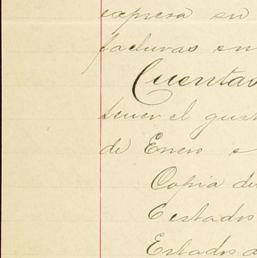 expresa en
facturas en
Cuentas
tener el gust
de Enero e
Copia de
Estados
Estados a